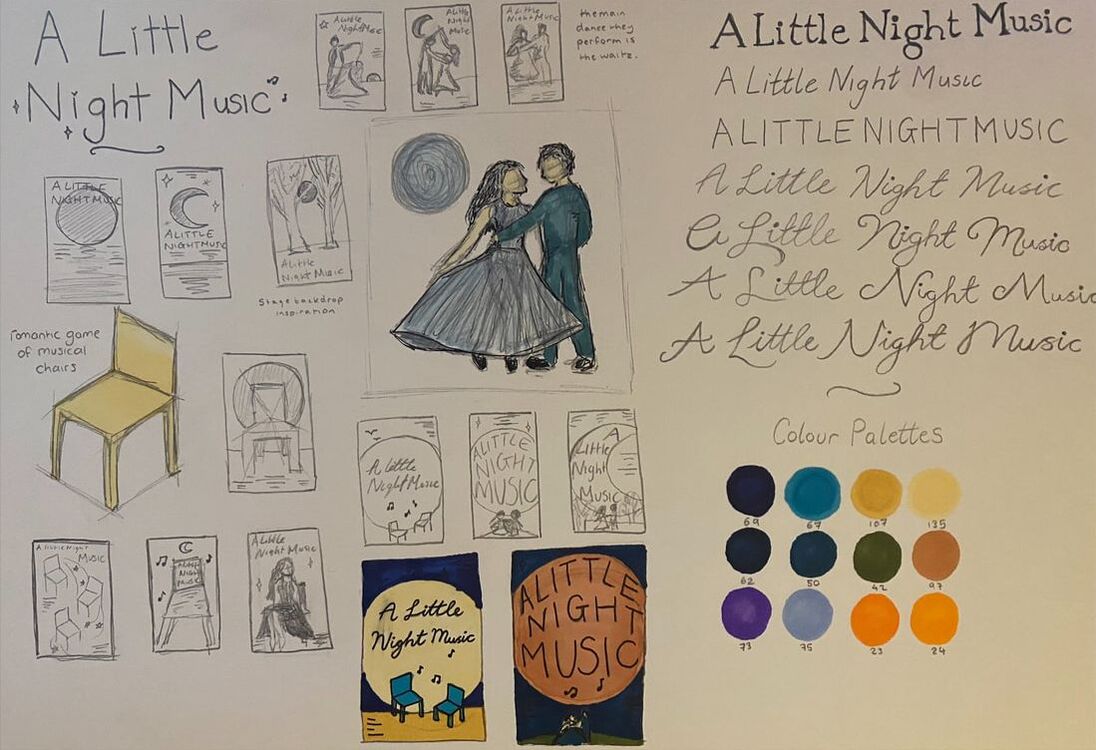 A Little
Night Music
A Little
Night Music
A Little
Night
Music
A Little
Night Music
the main
dance they
perform is
the waltz.
A LITTLE
NIGHT MUSIC
A LITTLE
NIGHT MUSIC
A Little
Night Music
Stage backdrop
inspiration
romantic game
of musical
chairs
A little
Night Music
A LITTLE
NIGHT
MUSIC
A
Little
Night
Music
A Little Night
Music
A Little
Night
Music
A Little
Night Music
A Little
Night Music
A LITTLE
NIGHT
MUSIC
A Little Night Music
A Little Night Music
A LITTLE NIGHT MUSIC
A Little Night Music
a Little Night Music
A Little Night Music
A Little Night Music
Colour Palettes
69 67 107 135
62 50 42 97
73 75 23 24